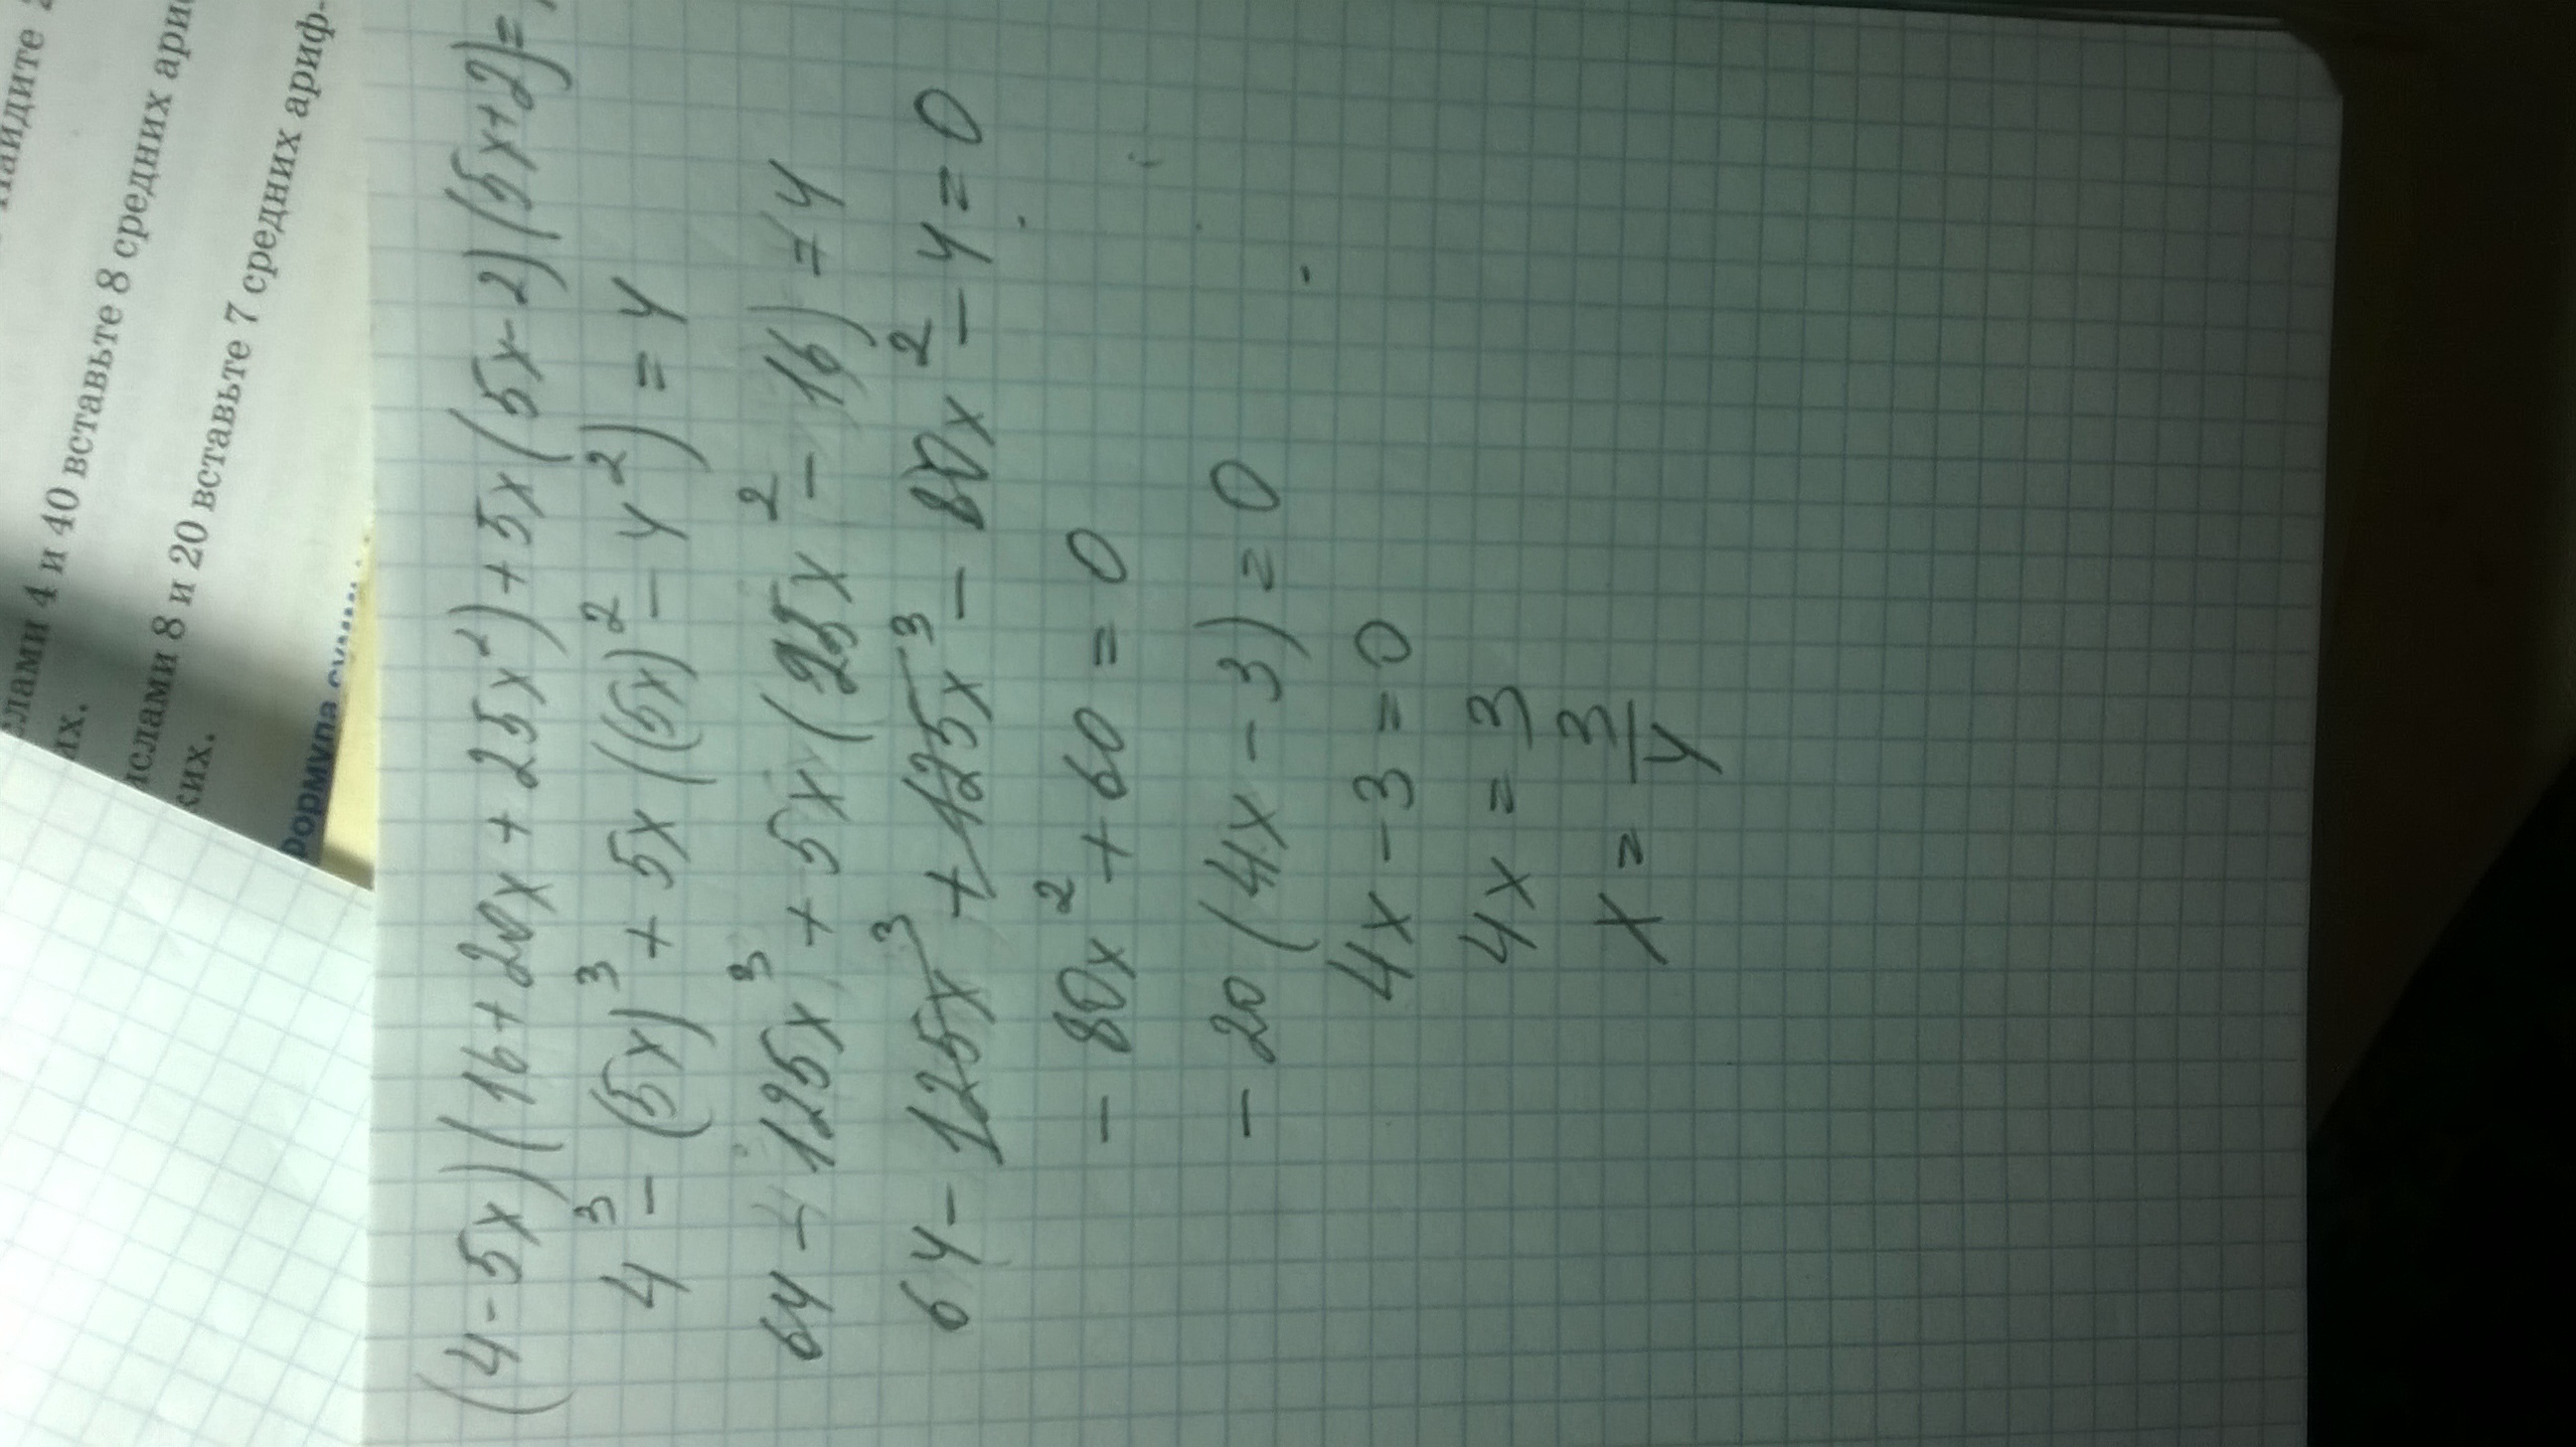 айдите
слами 4 и 40 вставьте 8 средних ариф
их.
ислами 8 и 20 вставьте 7 средних ариф-
ких.
формула суммы
(4-5x)(16+20x+25x²)+5x(5x-2)(5x+2)=
4³-(5x)³+5x((5x)²-4²)=4
64-125x³+5x(25x²-16)=4
64-125x³+125x³-80x²-4=0
-80x²+60=0
-20(4x-3)=0
4x-3=0
4x=3
x=3/4